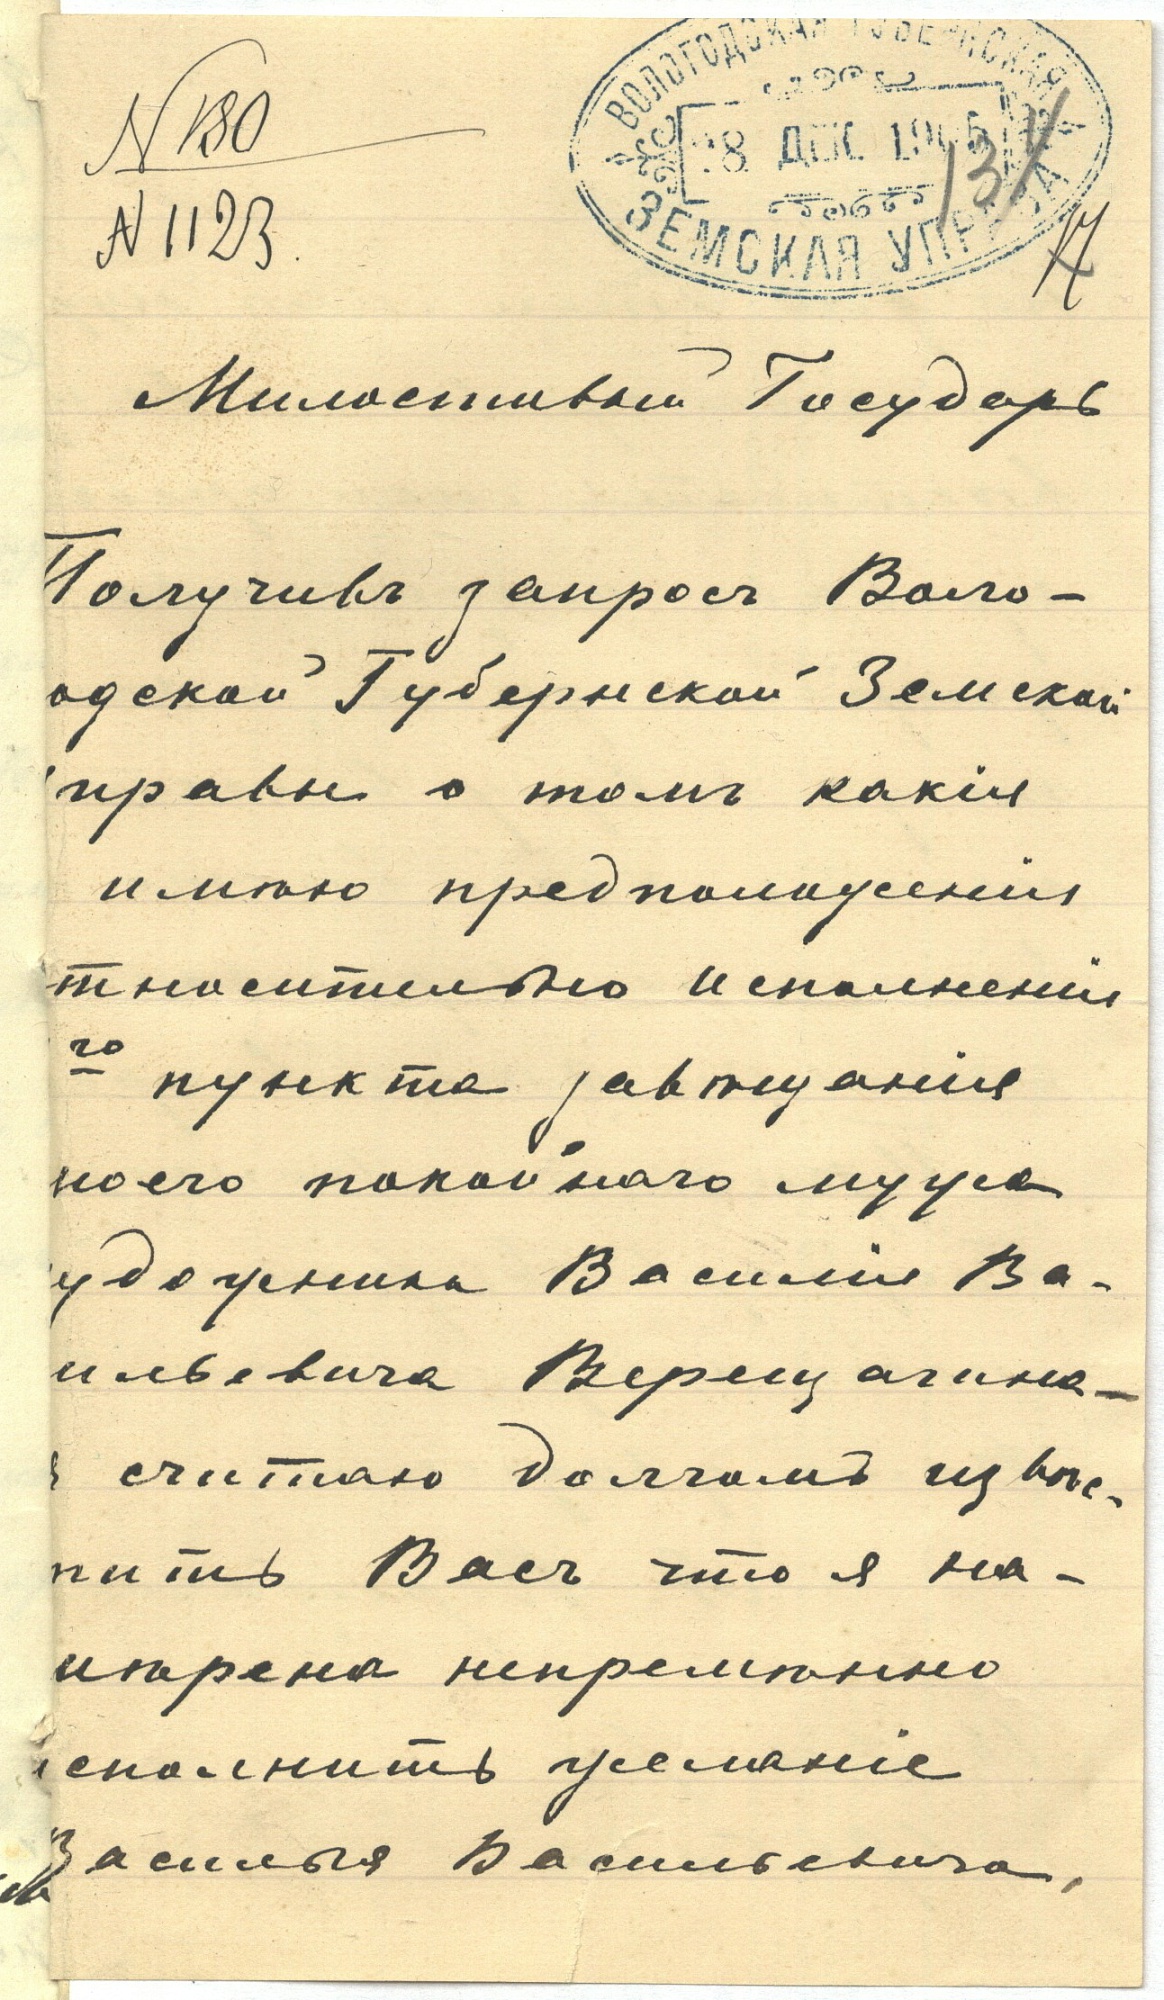 N 180
N 1123.
ВОЛОГОДСКАЯ ГУБЕРНСКАЯ
8 ДЕК. 1905
ЗЕМСКАЯ УПРАВА
Милостивый Государь
Получивъ запросъ Воло-
одской Губернской Земской
правы о томъ какія
имѣю предположенія
тносительно исполненія
го пункта завѣщанія
моего покойнаго мужа
удожника Василія Ва-
ильевича Верещагина-
я считаю долгомъ извѣс-
тить Васъ что я на-
мѣрена непремѣнно
исполнить желаніе
Василья Васильевича,